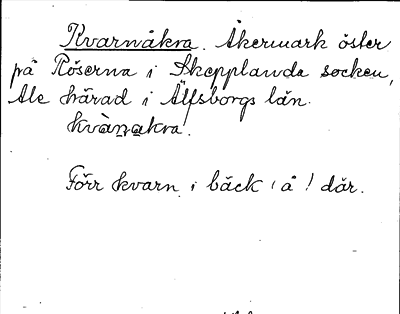 Kvarnåkra. Åkermark öster
på Röserna i Skepplanda socken,
Ale härad i Älfsborgs län.
Kvànakra.
Förr kvarn i bäck (å) där.